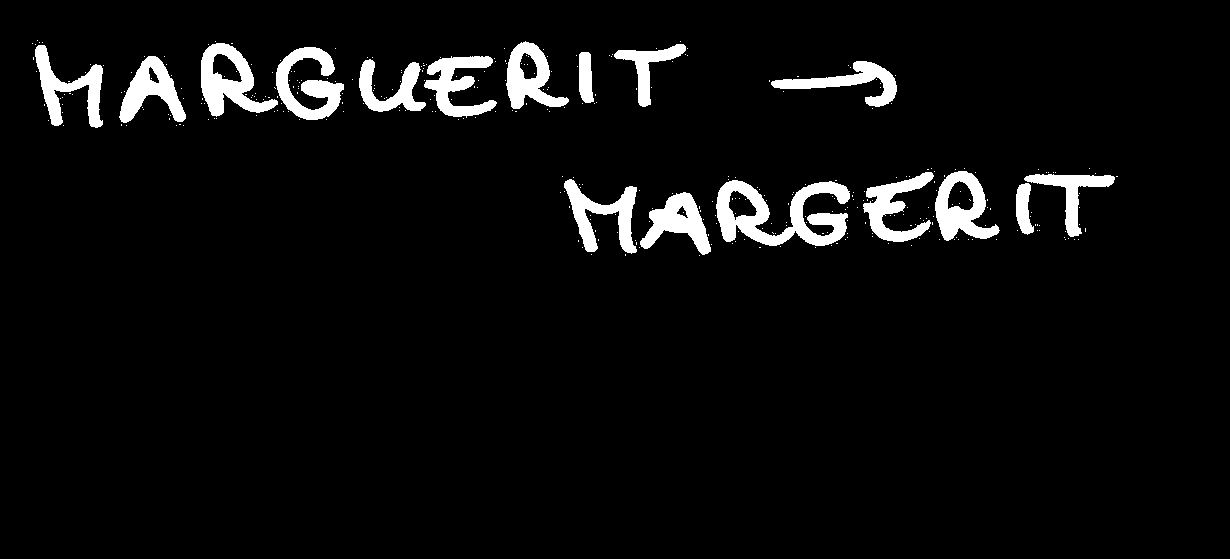 MARGUERIT →
MARGERIT